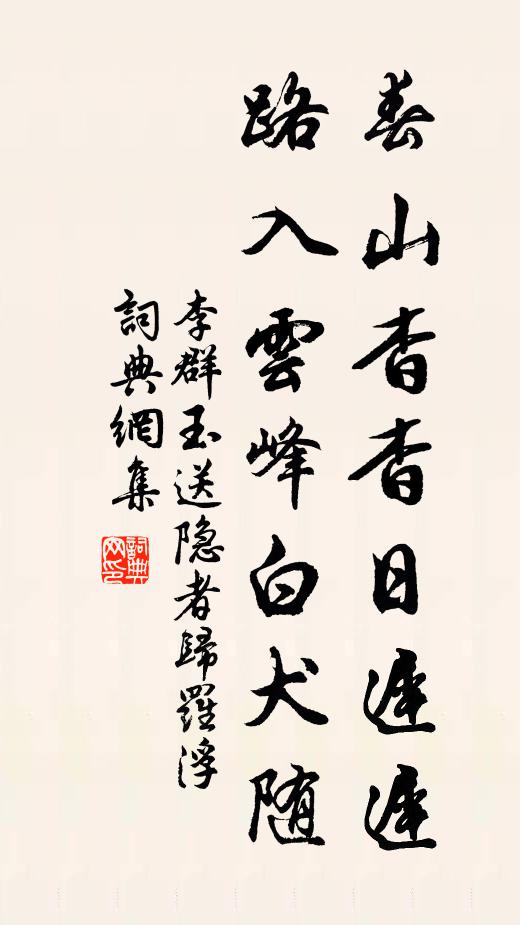 春山杳杳日遲遲
路入雲峰白犬随
李群玉送隐者歸羅浮
詞典網集
詞典网印